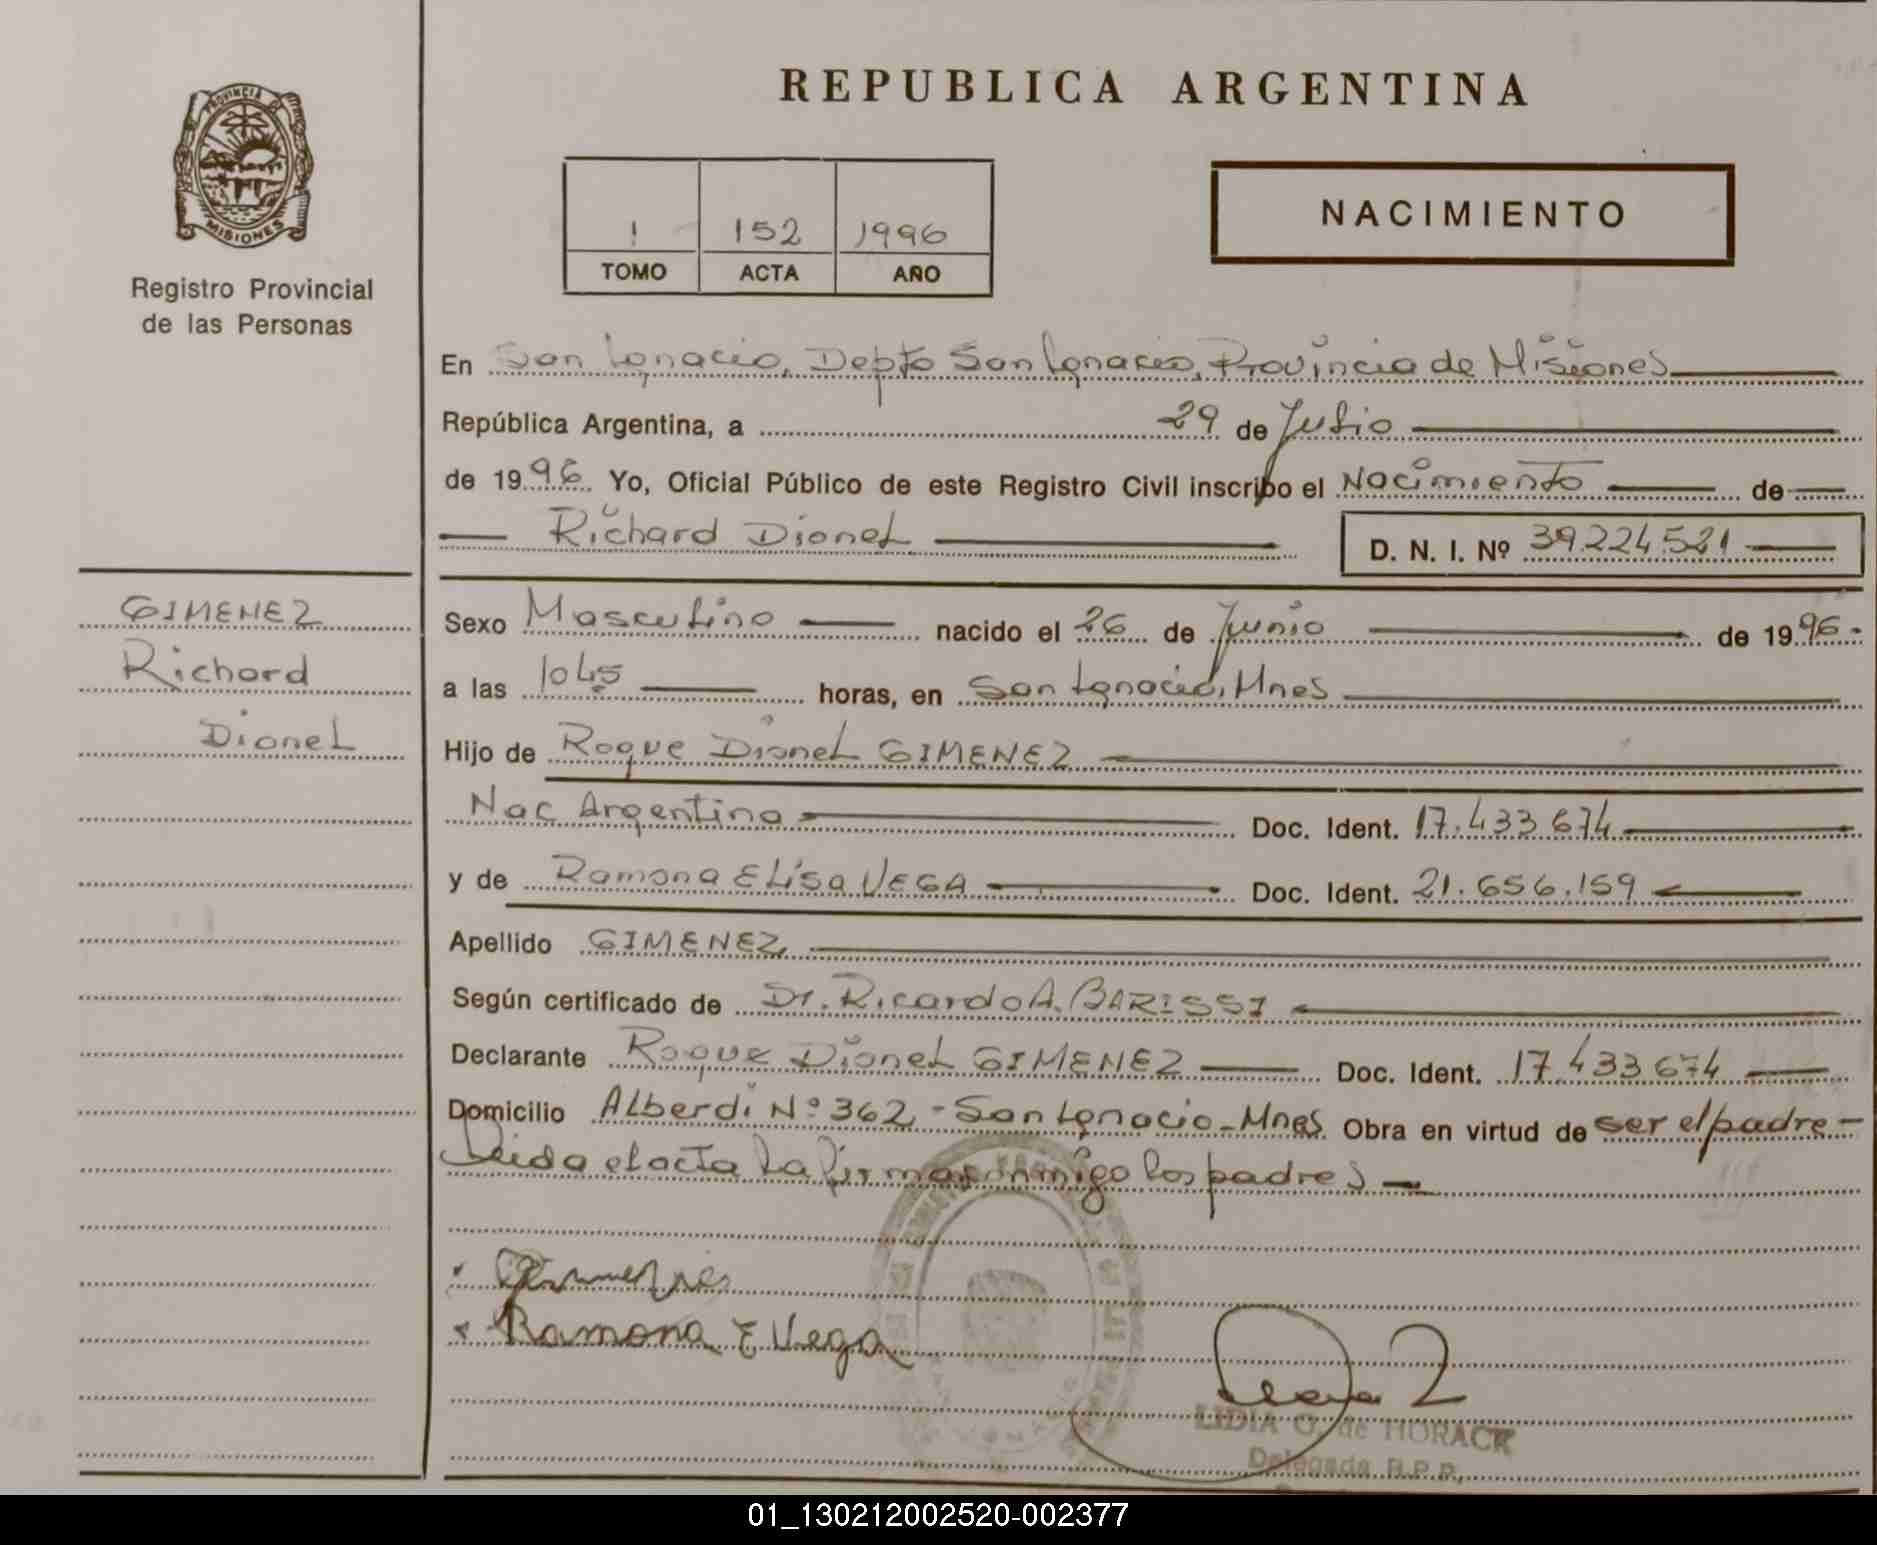 REPUBLICA ARGENTINA
PROVINCIA
MISIONES
Registro Provincial
de las Personas
1 152 1996
TOMO ACTA AÑO
NACIMIENTO
En San Ignacio, Depto San Ignacio, Provincia de Misiones
República Argentina, a 29 de Julio
de 1996 Yo, Oficial Público de este Registro Civil inscribo el Nacimiento de
Richard Dionel D. N. I. Nº 39.224.521
GIMENEZ
Richard
Dionel
Sexo Masculino nacido el 26 de Junio de 1996
a las 1045 horas, en San Ignacio, Mnes
Hijo de Roque Dionel GIMENEZ
Nac Argentina Doc. Ident. 17.433.674
y de Ramona Elisa VEGA Doc. Ident. 21.656.159
Apellido GIMENEZ
Según certificado de Dr. Ricardo A. BARISSI
Declarante Roque Dionel GIMENEZ Doc. Ident. 17.433.674
Domicilio Alberdi Nº 362 - San Ignacio - Mnes Obra en virtud de ser el padre -
Leida el acta la firman conmigo los padres
Ramona E Vega
LIDIA O. de HORACK
Delegada R.P.P.
01_130212002520-002377